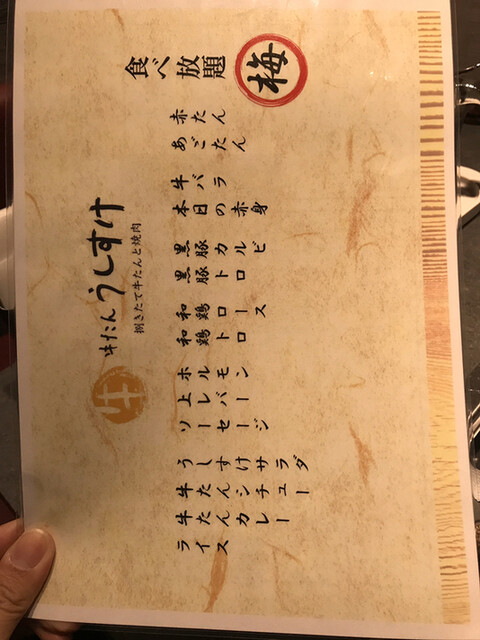 梅
食べ放題
赤たん
あごたん
牛バラ
本日の赤身
黒豚カルビ
黒豚トロ
和鶏ロース
和鶏トロ
ホルモン
上レバー
ソーセージ
うしすけサラダ
牛たんシチュー
牛たんカレー
ライス
捌きたて牛たんと焼肉
牛たん うしすけ
牛